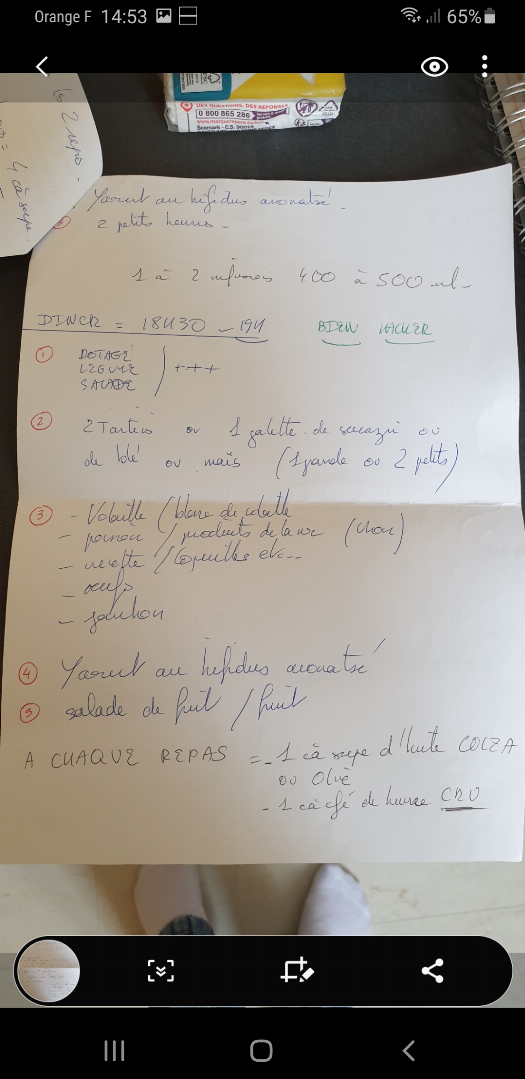 Orange F 14:53 65%
DES QUESTIONS, DES RÉPONSES
0 800 865 286
Scamark - C.S.
2 repo
= 4 cà supe
Yaourt au bifidus aromatisé.
2 petits beurres -
1 à 2 infusions 400 à 500 ml -
DINER = 18H30 - 19H BIEN MACHER
① POTAGE
LEGUME +++
SALADE
② 2 Tartines ou 1 galette de sarrazin ou
de blé ou maïs (1 grande ou 2 petits)
③ - Volaille / blanc de volaille
- poisson / produits de la mer (choix)
/ coquilles etc...
- oeufs
- jambon
④ Yaourt au bifidus aromatisé
⑤ salade de fruit / fruit
A CHAQUE REPAS = - 1 cà supe d'huile COLZA
ou Olive
- 1 cà fé de beurre CRU